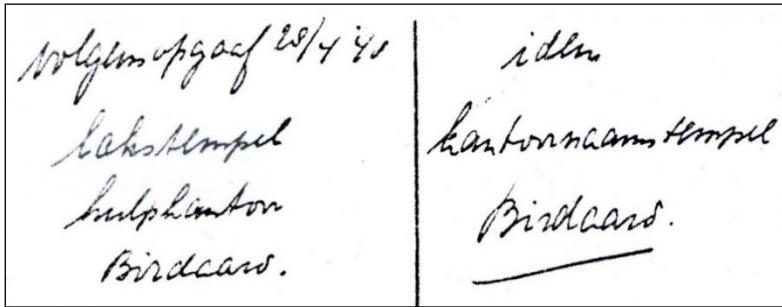 volgens opgaaf 28/4 '48
lakstempel
hulpkantoor
Birdaard.
idem
kantoornaamstempel
Birdaard.